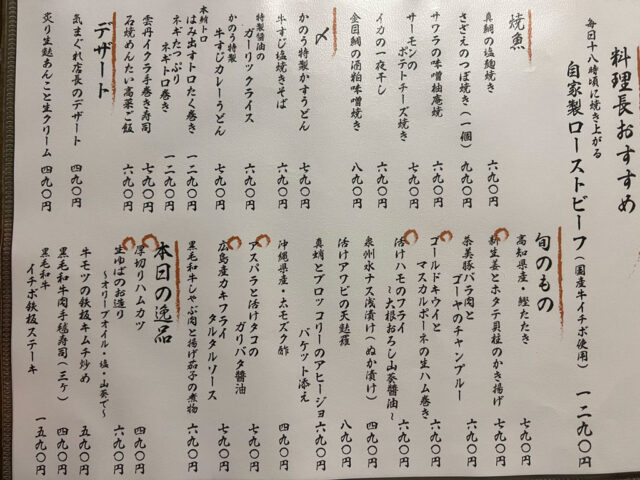 料理長おすすめ
毎日十八時頃に焼き上がる
自家製ローストビーフ（国産牛イチボ使用）　一二九〇円
焼魚
真鯛の塩麹焼き　六九〇円
さざえのつぼ焼き（一個）　九九〇円
サワラの味噌柚庵焼　六九〇円
サーモンの
ポテトチーズ焼き　六九〇円
イカの一夜干し　六九〇円
金目鯛の酒粕味噌焼き　八九〇円
〆
かのう特製かすうどん　七九〇円
牛すじ塩焼きそば　六九〇円
特製醤油の
ガーリックライス　六九〇円
かのう特製
牛すじカレーうどん　七九〇円
本鮪トロ
はみ出すトロたく巻き　一二九〇円
ネギたっぷり
ネギトロ巻き　一二九〇円
雲丹イクラ手巻き寿司　七九〇円
石焼めんたい高菜ご飯　六九〇円
デザート
気まぐれ店長のデザート　四九〇円
炙り生麩あんこと生クリーム　四九〇円
旬のもの
高知県産・鰹たたき　七九〇円
新生姜とホタテ貝柱のかき揚げ　七九〇円
茶美豚バラ肉と
ゴーヤのチャンプルー　六九〇円
ゴールドキウイと
マスカルポーネの生ハム巻き　六九〇円
活けハモのフライ
〜大根おろし山葵醤油〜　六九〇円
泉州水ナス浅漬け（ぬか漬け）　四九〇円
活けアワビの天麩羅　八九〇円
真蛸とブロッコリーのアヒージョ
バケット添え　六九〇円
沖縄県産・太モズク酢　四九〇円
アスパラと活けタコの
ガリバタ醤油　七九〇円
広島産カキフライ
タルタルソース　七九〇円
黒毛和牛しゃぶ肉と揚げ茄子の煮物　六九〇円
本日の逸品
厚切りハムカツ　四九〇円
生ゆばのお造り
〜オリーブオイル・塩・山葵で〜　六九〇円
牛モツの鉄板キムチ炒め　五九〇円
黒毛和牛肉手毬寿司（三ヶ）　四九〇円
黒毛和牛
イチボ鉄板ステーキ　一五九〇円